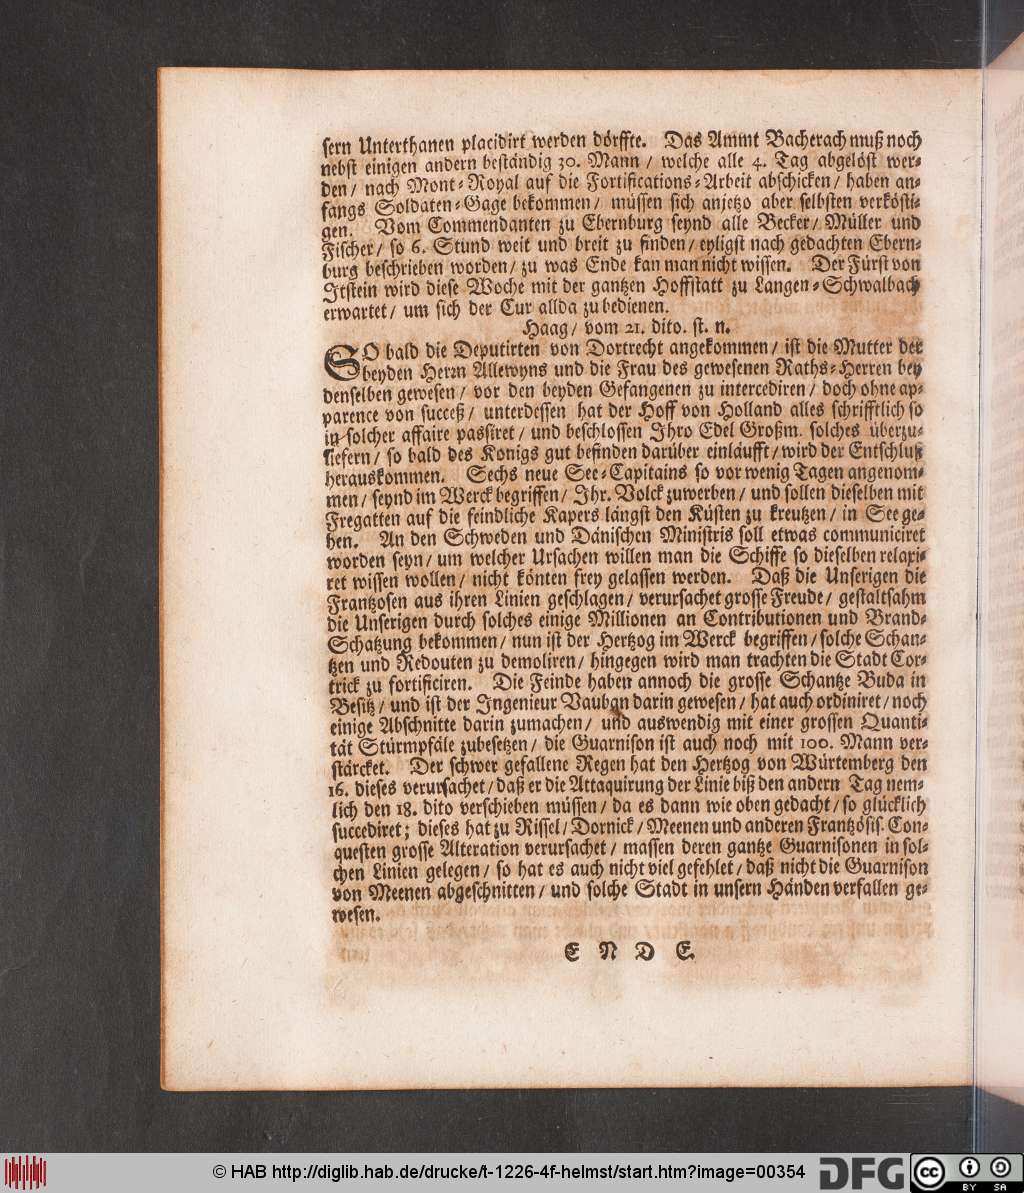 sern Unterthanen placidirt werden dörffte. Das Ammt Bacherach muß noch
nebst einigen andern beständig 30. Mann / welche alle 4. Tag abgelöst wer-
den / nach Mont-Royal auf die Fortifications-Arbeit abschicken / haben an-
fangs Soldaten-Gage bekommen / müssen sich anjetzo aber selbsten verkösti-
gen. Vom Commendanten zu Ebernburg seynd alle Becker / Müller und
Fischer / so 6. Stund weit und breit zu finden / eyligst nach gedachten Ebern-
burg beschrieben worden / zu was Ende kan man nicht wissen. Der Fürst von
Itstein wird diese Woche mit der gantzen Hoffstatt zu Langen-Schwalbach
erwartet / um sich der Cur allda zu bedienen.
Haag / vom 21. dito. st. n.
SO bald die Deputirten von Dortrecht angekommen / ist die Mutter der
beyden Herrn Allewyns und die Frau des gewesenen Raths-Herren bey
denselben gewesen / vor den beyden Gefangenen zu intercediren / doch ohne ap-
parence von succeß / unterdessen hat der Hoff von Holland alles schrifftlich so
in solcher affaire passiret / und beschlossen Ihro Edel Großm. solches überzu-
liefern / so bald des Konigs gut befinden darüber einläufft / wird der Entschluß
herauskommen. Sechs neue See-Capitains so vor wenig Tagen angenom-
men / seynd im Werck begriffen / Ihr. Volck zuwerben / und sollen dieselben mit
Fregatten auf die feindliche Kapers längst den Küsten zu kreutzen / in See ge-
hen. An den Schweden und Dänischen Ministris soll etwas communiciret
worden seyn / um welcher Ursachen willen man die Schiffe so dieselben relaxi-
ret wissen wollen / nicht könten frey gelassen werden. Daß die Unserigen die
Frantzosen aus ihren Linien geschlagen / verursachet grosse Freude / gestaltsahm
die Unserigen durch solches einige Millionen an Contributionen und Brand-
Schatzung bekommen / nun ist der Hertzog im Werck begriffen / solche Schan-
tzen und Redouten zu demoliren / hingegen wird man trachten die Stadt Cor-
trick zu fortificiren. Die Feinde haben annoch die grosse Schantze Buda in
Besitz / und ist der Ingenieur Vauban darin gewesen / hat auch ordiniret / noch
einige Abschnitte darin zumachen / und auswendig mit einer grossen Quanti-
tät Stürmpfäle zubesetzen / die Guarnison ist auch noch mit 100. Mann ver-
stärcket. Der schwer gefallene Regen hat den Hertzog von Würtemberg den
16. dieses verursachet / daß er die Attaquirung der Linie biß den andern Tag nem-
lich den 18. dito verschieben müssen / da es dann wie oben gedacht / so glücklich
succediret; dieses hat zu Rissel / Dornick / Meenen und anderen Frantzösis. Con-
questen grosse Alteration verursachet / massen deren gantze Guarnisonen in sol-
chen Linien gelegen / so hat es auch nicht viel gefehlet / daß nicht die Guarnison
von Meenen abgeschnitten / und solche Stadt in unsern Händen verfallen ge-
wesen.
E N D E.
© HAB http://diglib.hab.de/drucke/t-1226-4f-helmst/start.htm?image=00354 DFG cc BY SA